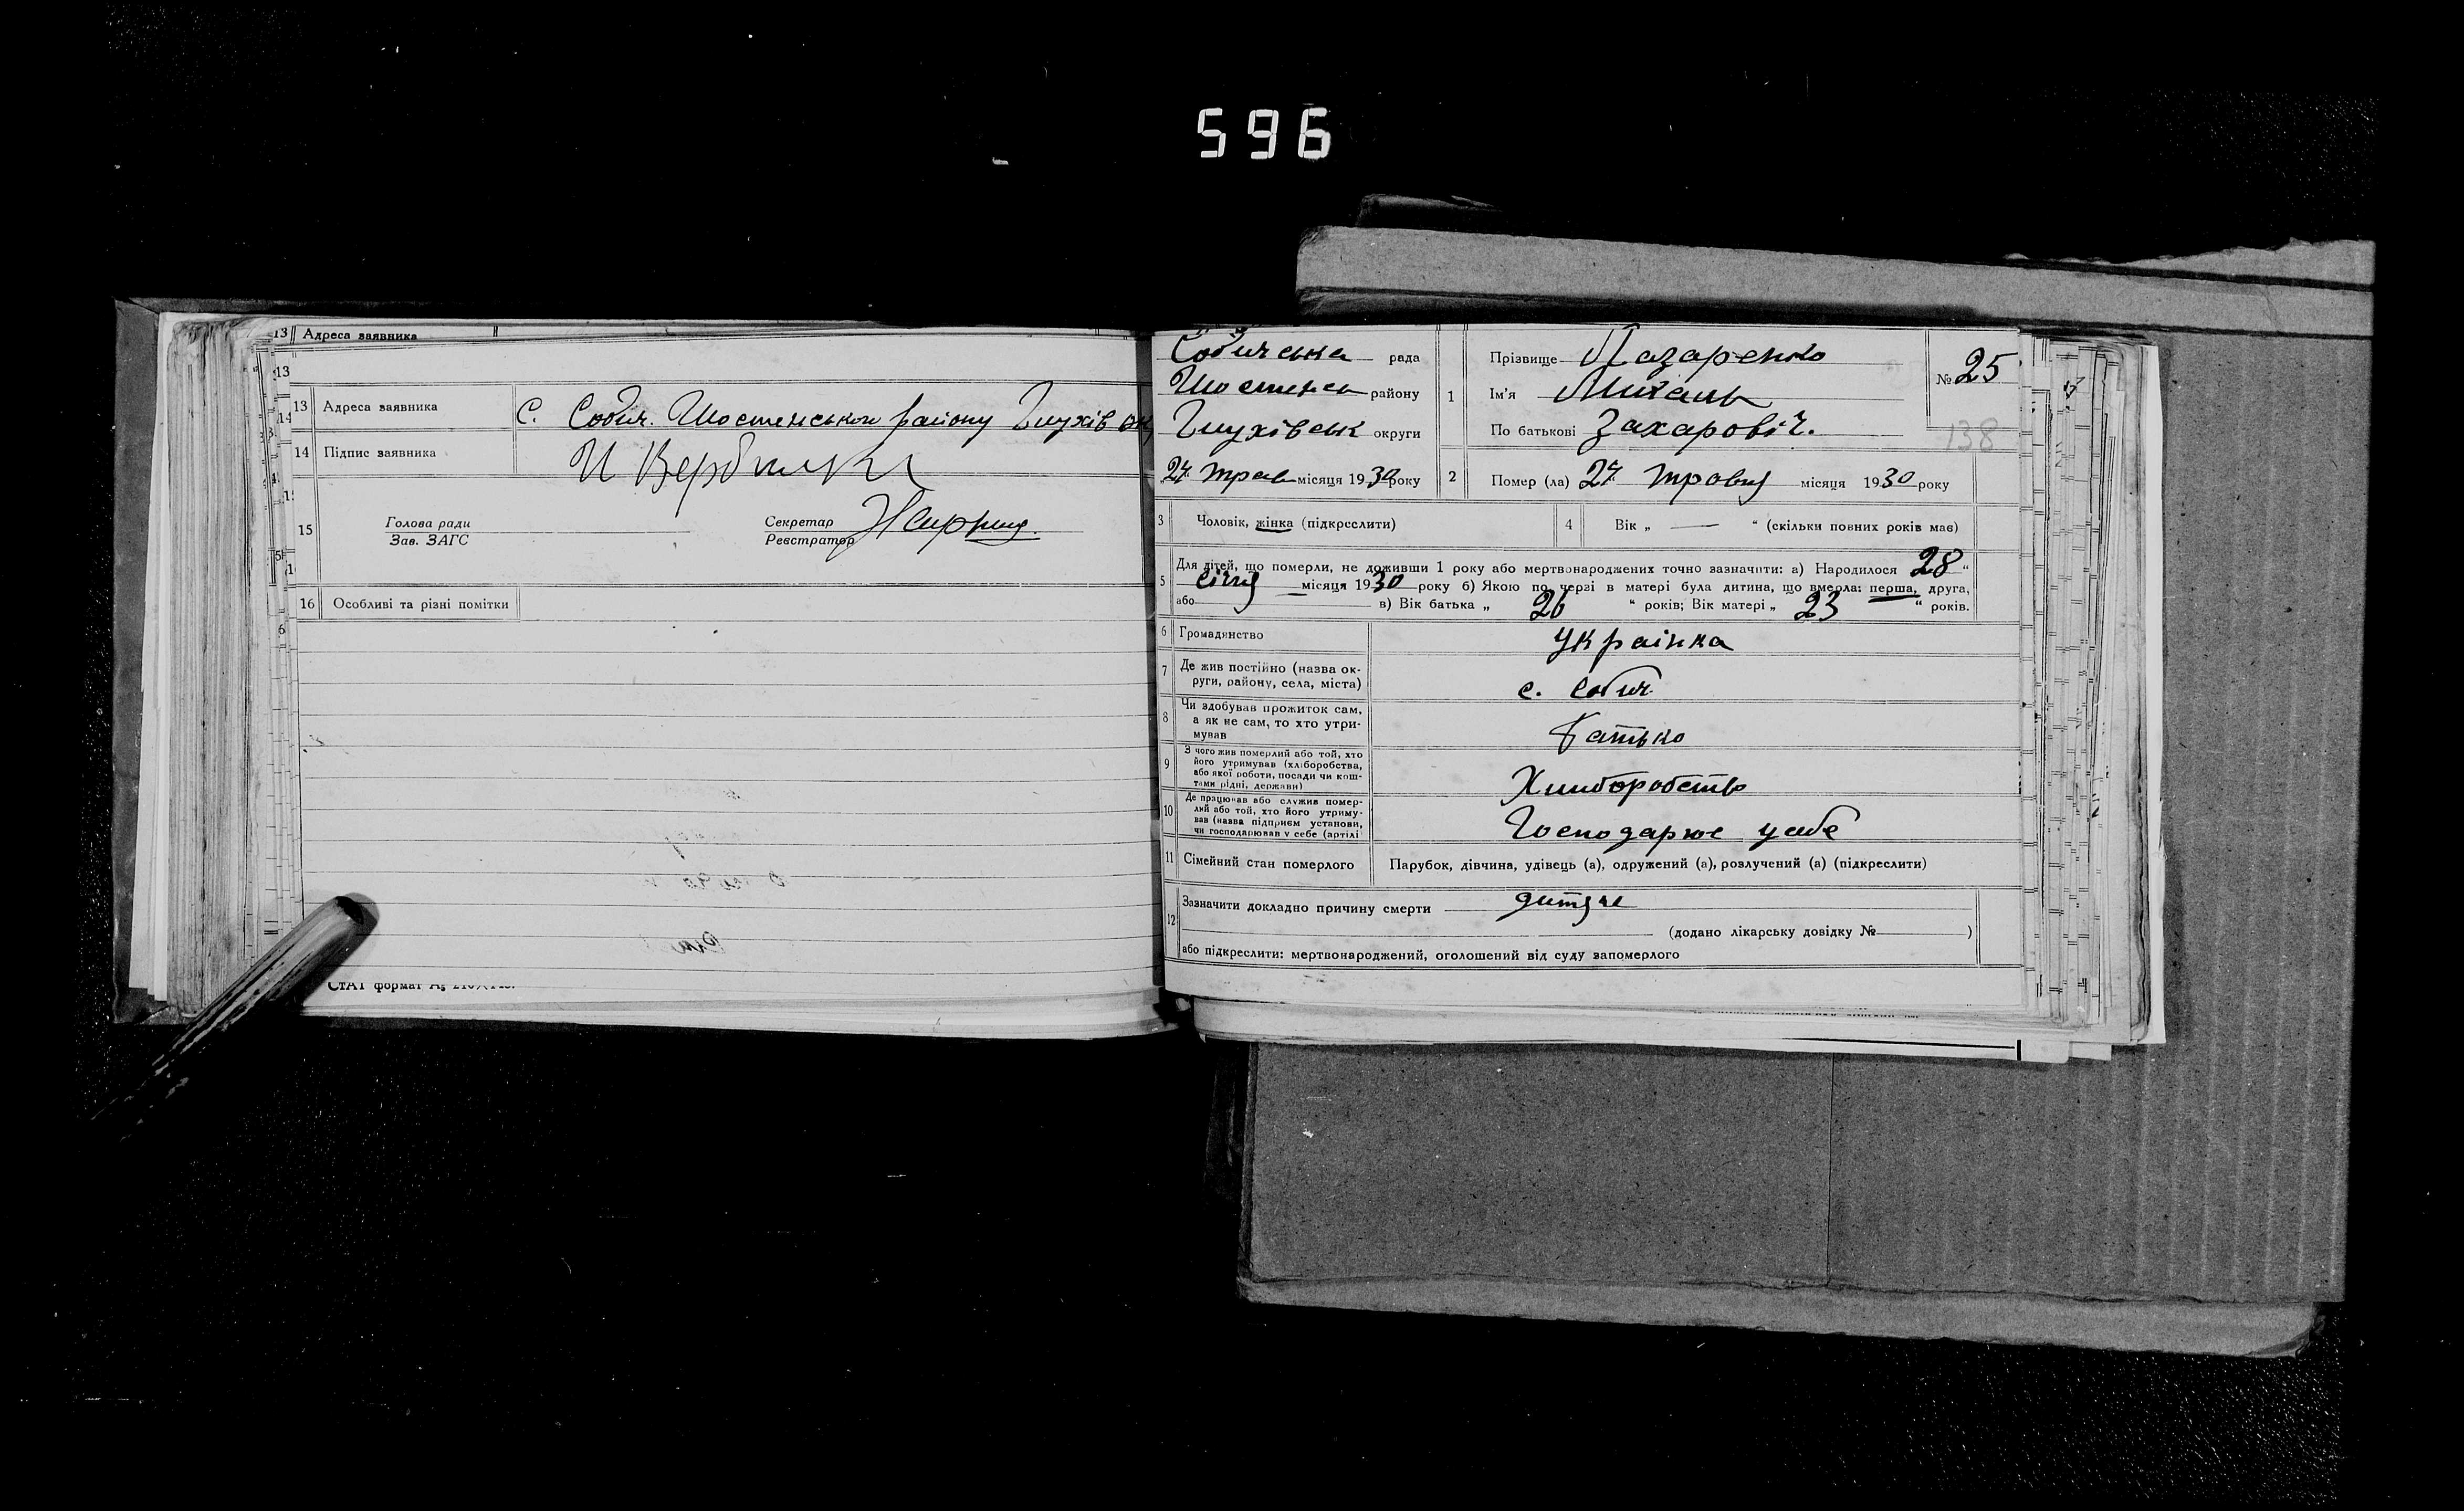 596
13 Адреса заявника
13
13 Адреса заявника С. Собич. Шостенського району Глухів ок
14 Підпис заявника И Вербицки
15 Голова ради Секретар
Зав. ЗАГС Реєстратор
16 Особливі та різні помітки
СтАТ формат А5
Собичська рада
Шостенсь району
Глухівськ округи
27 трав місяця 1930 року
1 Прізвище Лазаренко
Ім'я Михаль
По батькові Захаровіч.
№ 25
138
2 Помер (ла) 27 травня місяця 1930 року
3 Чоловік, жінка (підкреслити) 4 Вік „ — “ (скільки повних років має)
5 Для дітей, що померли, не доживши 1 року або мертвонароджених точно зазначити: а) Народилося 28 “
січня місяця 1930 року б) Якою по черзі в матері була дитина, що вмерла: перша, друга,
або в) Вік батька „ 26 “ років; Вік матері „ 23 “ років.
6 Громадянство Украінка
7 Де жив постійно (назва округи, району, села, міста) с. Собич
8 Чи здобував прожиток сам, а як не сам, то хто утримував Батько
9 З чого жив померлий або той, хто його утримував (хліборобства, або якої роботи, посади чи коштами рідні, держави) Хлиборобств
10 Де працював або служив померлий або той, хто його утримував (назва підприєм установи, чи господарював у себе (артілі Господарює усебе
11 Сімейний стан померлого Парубок, дівчина, удівець (а), одружений (а), розлучений (а) (підкреслити)
12 Зазначити докладно причину смерти дитяче
(додано лікарську довідку № )
або підкреслити: мертвонароджений, оголошений від суду запомерлого